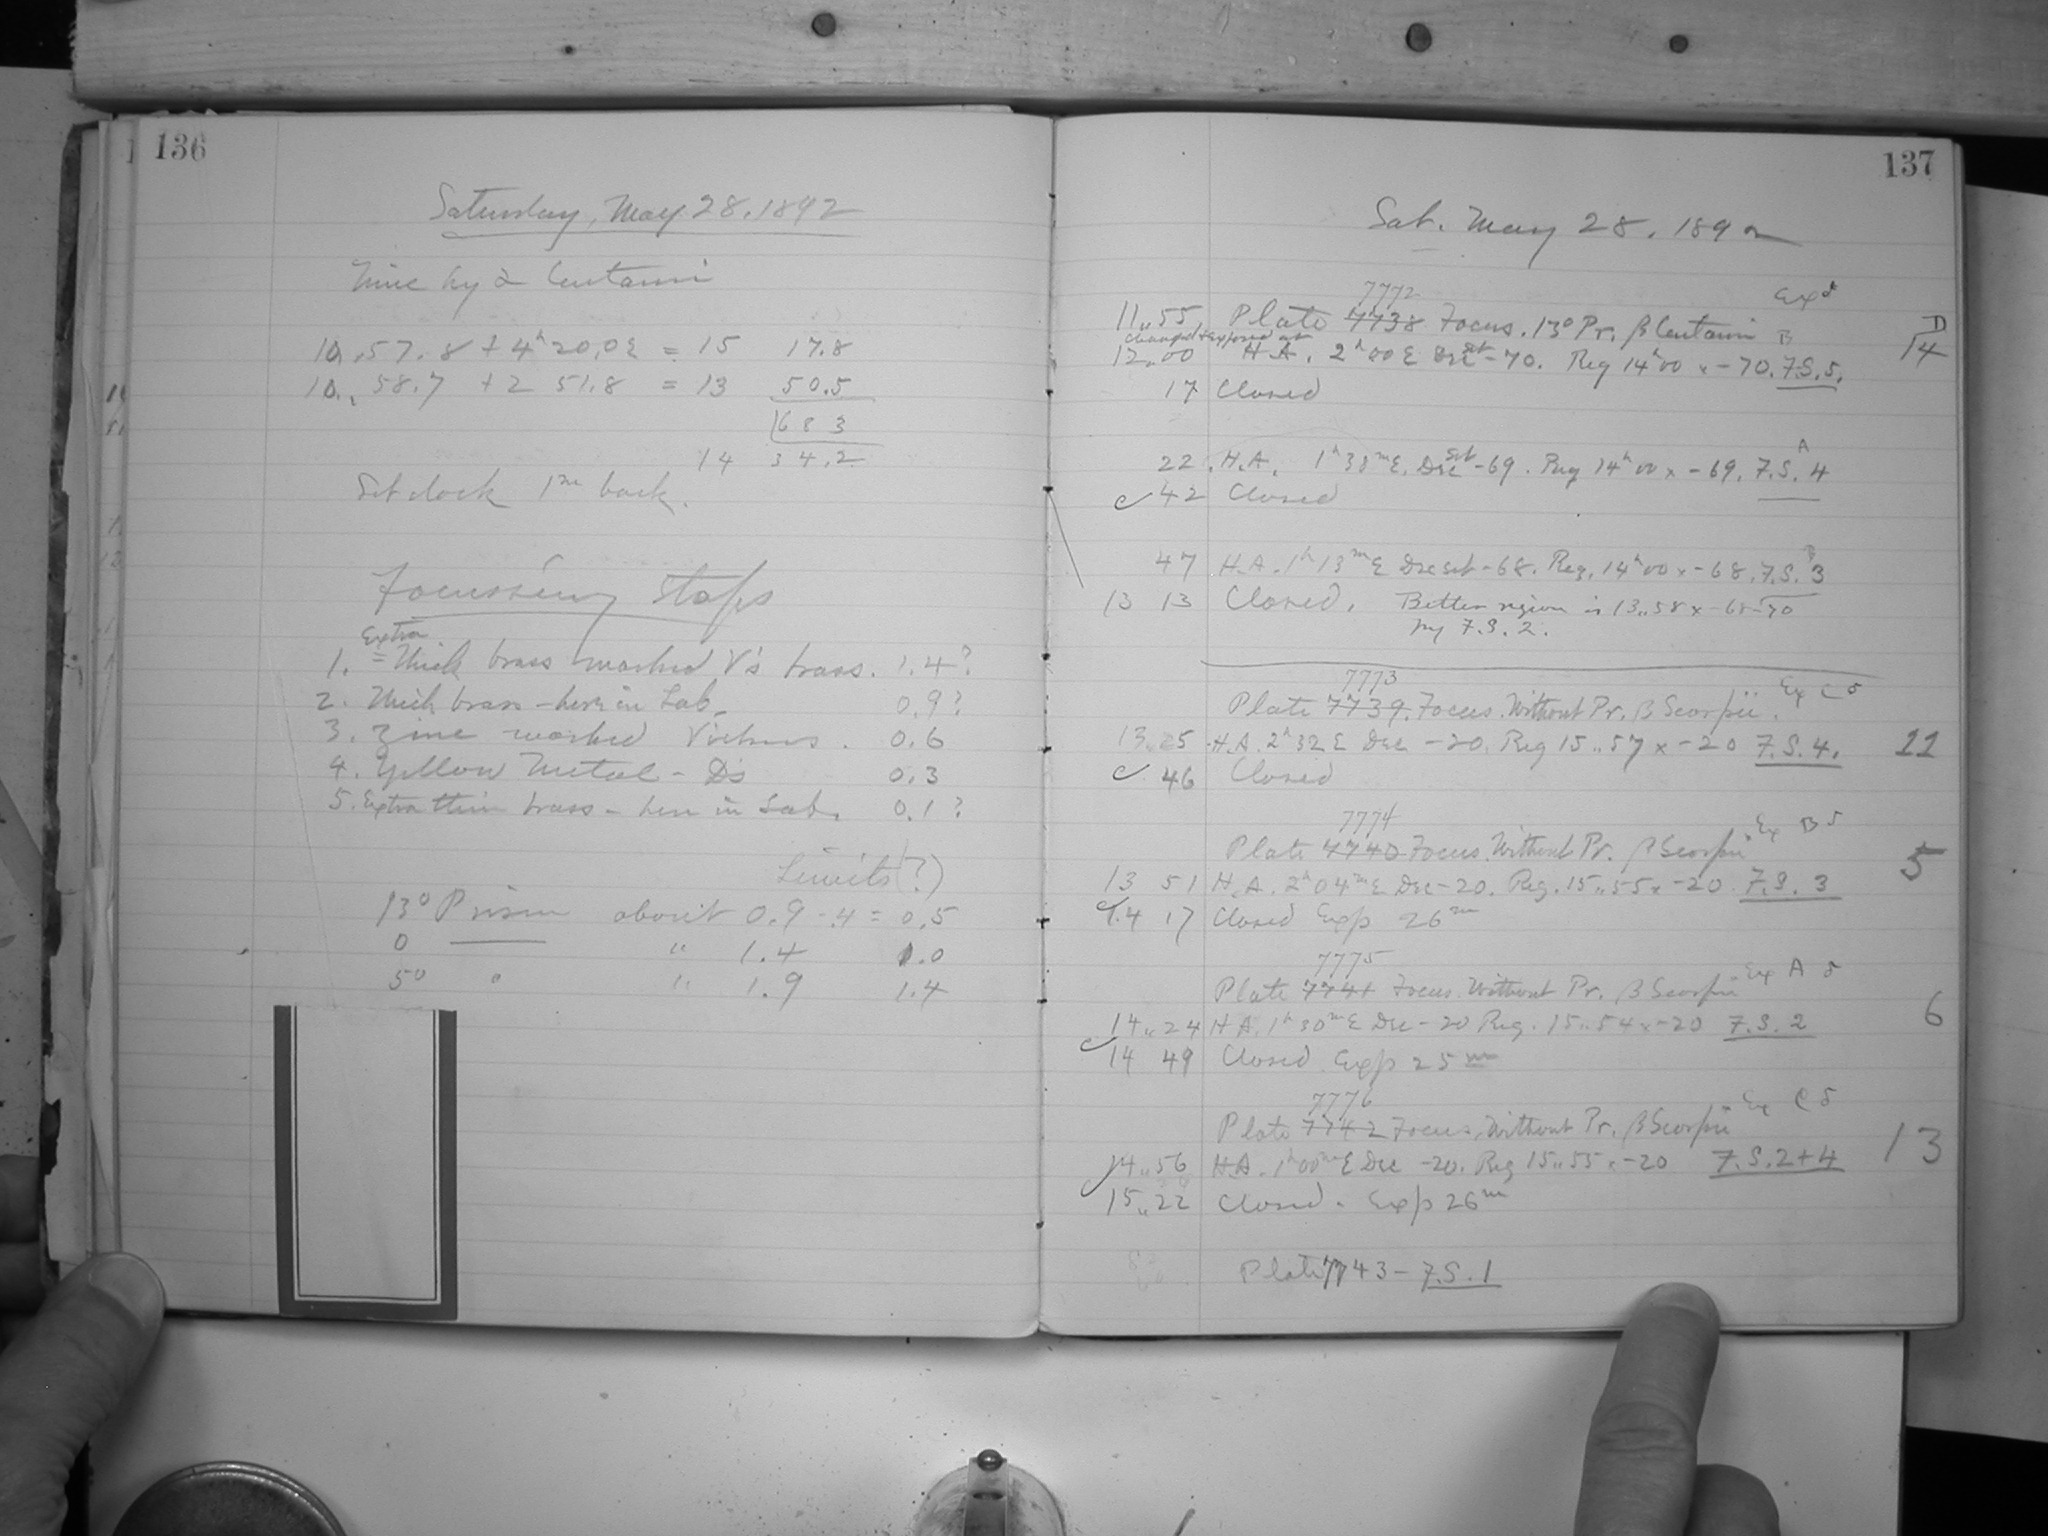 136
Saturday, May 28. 1892
Time by α Centauri
10,,57.8 + 4h 20.0 E = 15 17.8
10,, 58.7 + 2 51.8 = 13 50.5
68 3
14 34.2
Set clock 1m back.
Focussing Stops
Extra
1. = Thick brass marked V's brass. 1.4?
2. Thick brass – here in Lab. 0.9?
3. Zinc marked Vickers. 0.6
4. Yellow Metal – D's 0.3
5. Extra thin brass – here in Lab. 0.1?
Limits (?)
13° Prism about 0.9 - .4 = 0.5
0 —— " 1.4 1.0
5° " " 1.9 1.4
137
Sat. May 28. 1892
7772 Exd
11,,55 Plate 7738 Focus. 13° Pr. β Centauri B D
changed & exposed at
12,,00 H.A. 2h 00 E Dec set -70. Reg 14h 00 x -70. F.S. 5. 14
17 Closed
A
22 H.A. 1h 38m E. Dec set -69. Reg 14h 00 x -69. F.S. 4
42 Closed
B
47 H.A. 1h 13m E Dec set -68. Reg. 14h 00 x -68. F.S. 3
13 13 Closed. Better region is 13,,58 x -68-70
my F.S. 2.
7773
Plate 7739. Focus. Without Pr. β Scorpii. Ex C 5
13,,25 H.A. 2h 32 E Dec -20. Reg 15,,57 x -20 F.S. 4. 22
46 Closed
7774
Plate 7740 Focus. Without Pr. β Scorpii Ex B 5
13 51 H.A. 2h 04m E Dec -20. Reg. 15,,55 x -20 F.S. 3 5
14 17 Closed Exp 26m
7775
Plate 7741 Focus. Without Pr. β Scorpii Ex A 5
14,,24 H.A. 1h 30m E Dec -20 Reg. 15,,54 x -20 F.S. 2 6
14 49 Closed Exp 25m
7776
Plate 7742 Focus. Without Pr. β Scorpii Ex C 5
14,,56 H.A. 1h 00m E Dec -20. Reg 15,,55 x -20 F.S. 2+4 13
15,,22 Closed. Exp 26m
Plate 7743 – F.S. 1